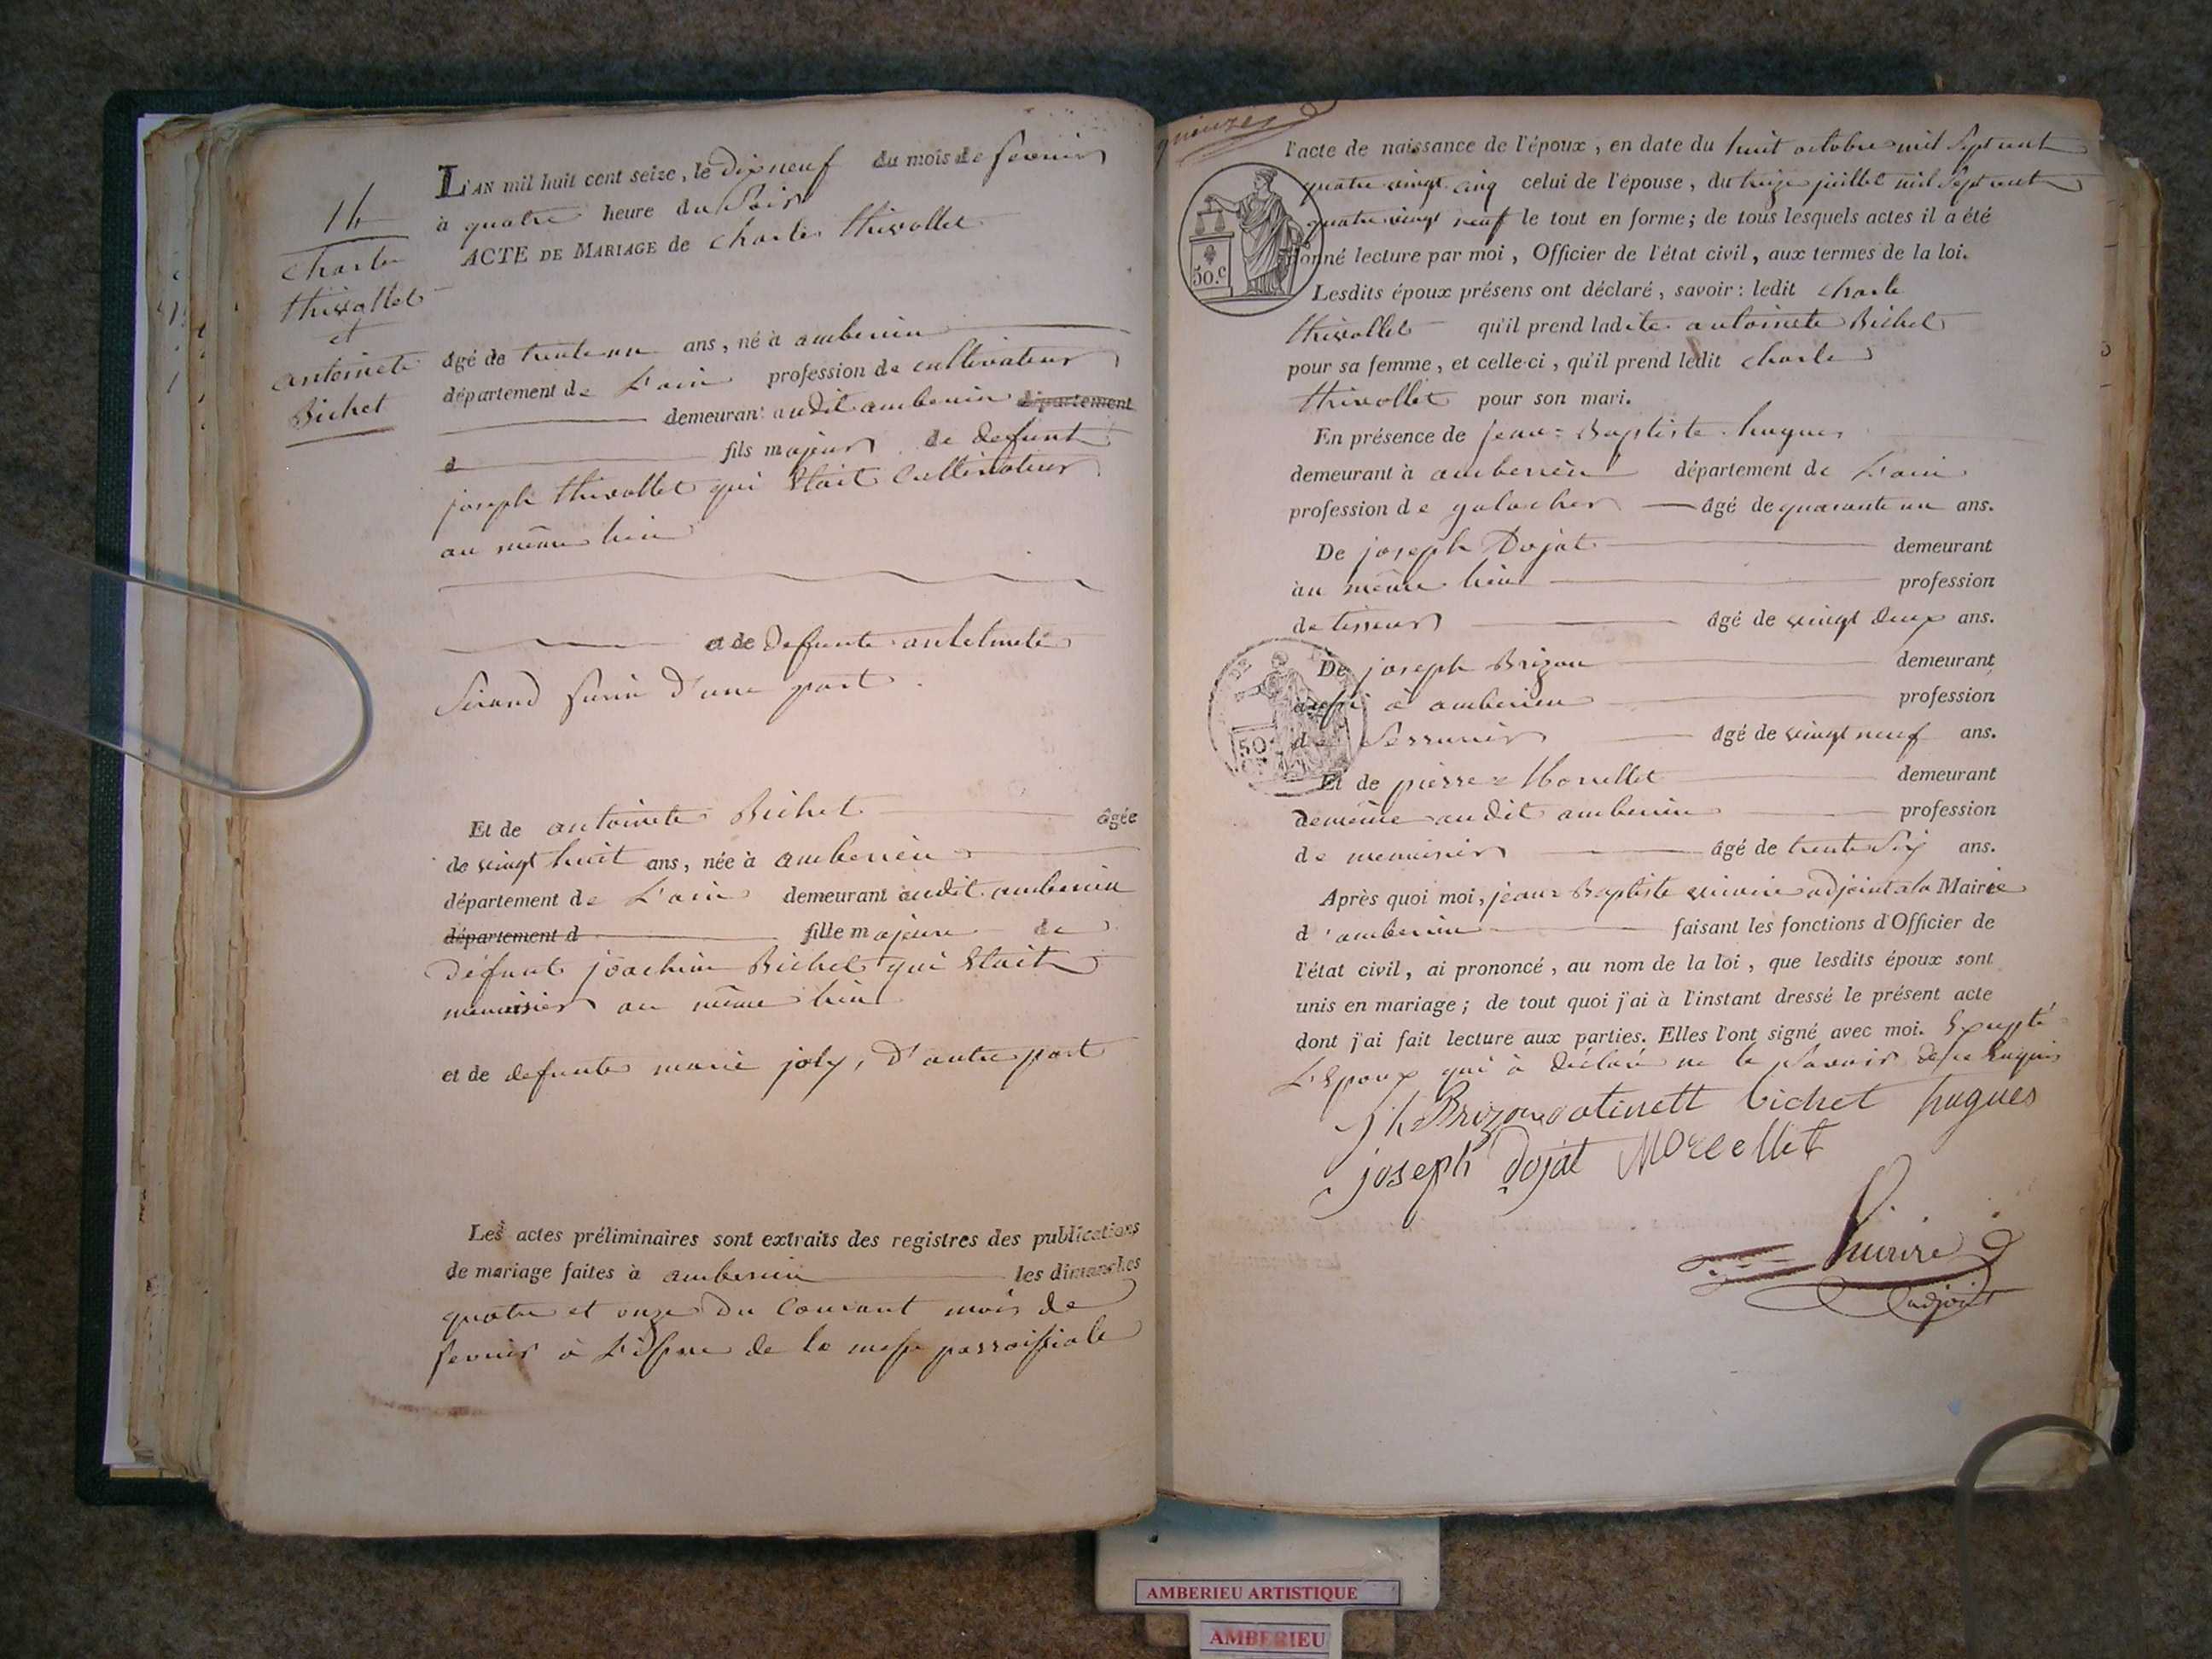 14
Charle
thivollet
et
antoinete
Bichet
L'AN mil huit cent seize, le Dixneuf du mois de fevrier
à quatre heure du Soir
ACTE DE MARIAGE de Charle thivollet
âgé de trente un ans, né à amberieu
département de L'ain profession de cultivateur
demeurant audit amberieu département
d fils majeur de defunt
joseph thivollet qui Etait Cultivateur
au même lieu
et de defunte antelmete
Sirand d'une part
Et de antoinete Bichet âgée
de vingt huit ans, née à amberieu
département de L'ain demeurant audit amberieu
département d fille majeure de
Défunt joachim Bichet qui Etait
menuisier au même lieu
et de defunte marie joly, D'autre part
Les actes préliminaires sont extraits des registres des publications
de mariage faites à amberieu les dimanches
quatre et onze Du Courant mois de
fevrier à L'issue de la messe parroissiale
l'acte de naissance de l'époux, en date du huit octobre mil Sept cent
quatre vingt cinq celui de l'épouse, du treize juillet mil Sept cent
quatre vingt neuf le tout en forme; de tous lesquels actes il a été
donné lecture par moi, Officier de l'état civil, aux termes de la loi.
50.c
Lesdits époux présens ont déclaré, savoir: ledit Charle
thivollet qu'il prend ladite antoinete Bichet
pour sa femme, et celle-ci, qu'il prend ledit Charle
thivollet pour son mari.
En présence de jean=Baptiste hugues
demeurant à amberieu département de L'ain
profession de galocher âgé de quarante un ans.
De joseph Dojat demeurant
au même lieu profession
de tisseur âgé de vingt deux ans.
De joseph Brizon demeurant
aussi à amberieu profession
50
de Serrurier âgé de vingt neuf ans.
Et de pierre= Morellet demeurant
demême audit amberieu profession
de menuisier âgé de trente Six ans.
Après quoi moi, jean=Baptiste adjoint a la Mairie
d'amberieu faisant les fonctions d'Officier de
l'état civil, ai prononcé, au nom de la loi, que lesdits époux sont
unis en mariage; de tout quoi j'ai à l'instant dressé le présent acte
dont j'ai fait lecture aux parties. Elles l'ont signé avec moi. Excepté
L'Epoux qui à Déclaré ne le Savoir de ce Enquis
jh Brizon bichet hugues
joseph Dojat
adjoint
AMBERIEU ARTISTIQUE
AMBERIEU